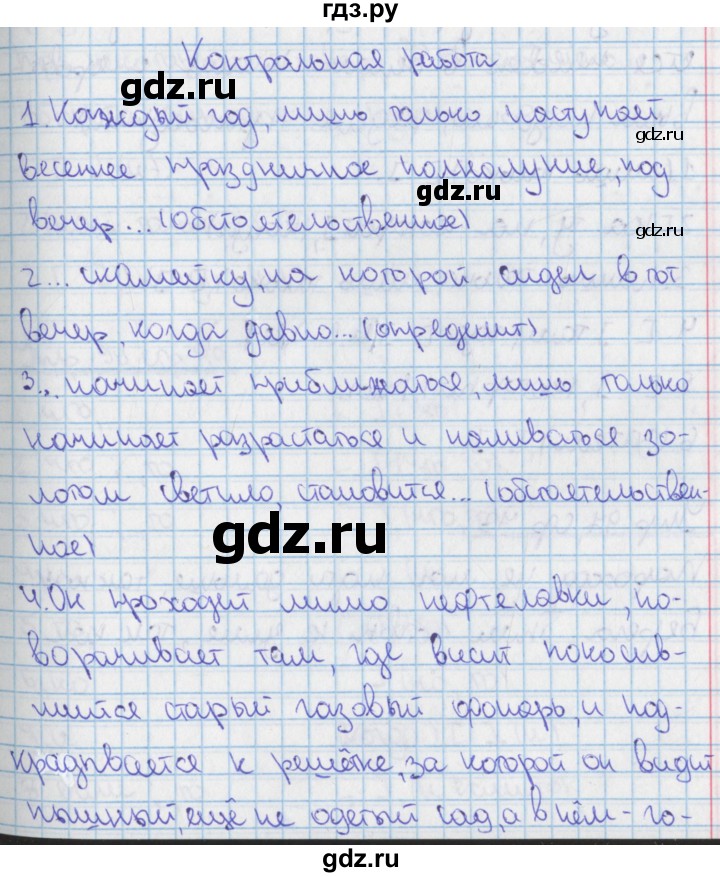 гдз.ру
Контрольная работа
gdz.ru
1. Каждый год, лишь только наступает
gdz.ru
весеннее праздничное полнолуние, под
gdz.ru
gdz.ru
вечер... (обстоятельственное)
2... скамейку, на которой сидел в тот
вечер, когда давно... (определит)
3... начинает приближаться, лишь только
начинает разрастаться и наливаться зо-
лотом светило, становится... (обстоятельствен-
gdz.ru
ное)
4. Он проходит мимо нефтелавки, по-
ворачивает там, где висит покосив-
шийся старый газовый фонарь, и под-
крадывается к решётке, за которой он видит
пышный, ещё не одетый сад, а в нём - го-
gdz.ru